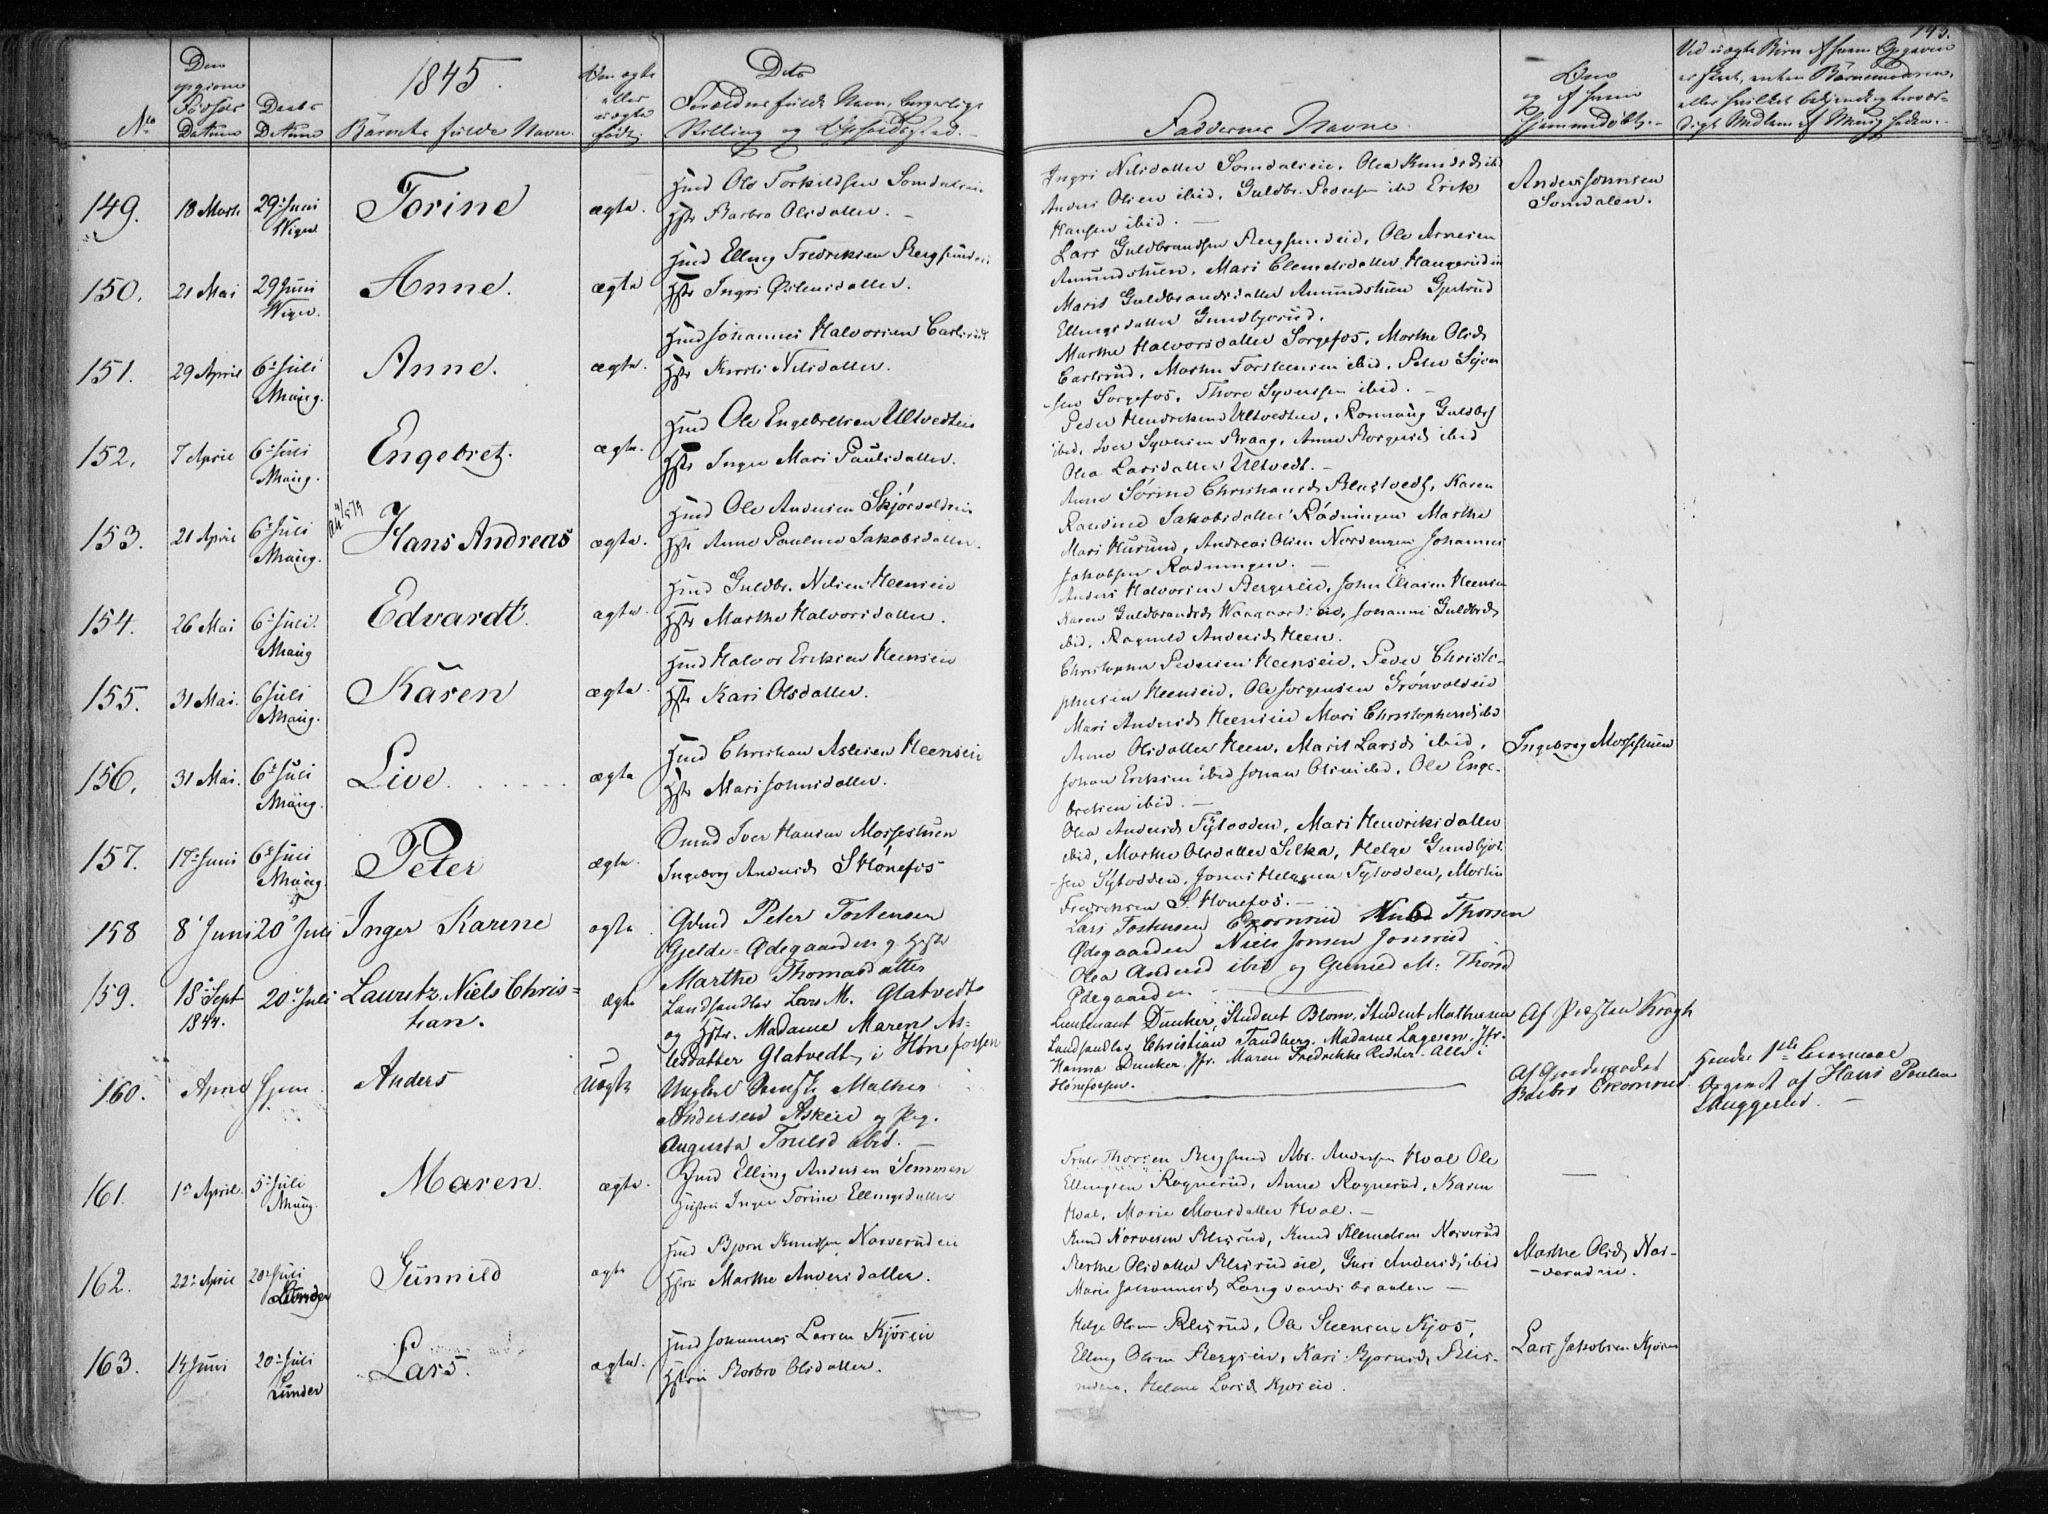 1845
143.
Den opgivne Fødsels Datum
Daabs Datum
No
Børnets fulde Navn.
Om ægte eller uægte født
Dets Forældres fulde Navn, borgerlige
Stilling og Opholdssted.
Faddernes Navne.
Om og af hvem Hjemmedøbt.
149. 18 Marts 29 Juni Viger Torine ægte.
Hmd Ole Torkildsen Somdalseie
Hstr Barbro Olsdatter.
Ingri Nilsdatter Somdalseie, Olea Knudsd ibid
Anders Olsen ibid, Guldbr. Pedersen ibid Erick
Hansen ibid.
Anders Jonnsen
Somdalen.
150. 21 Mai 29 Juni Viger. Anne. ægte
Hmd Elling Fredriksen Bergsundeie
Hstr Ingri Østensdatter.
Lars Guldbrandsen Bergsundeie, Ole Arnesen
Amundstuen, Mari Clemetsdatter Haugerudeie
Marit Guldbrandsdatter Amundstuen Gjertrud
Ellingsdatter Gundbjørud.
151. 29 April 6 Juli Mäüg. Anne. ægte.
Hmd Johannes Halvorsen Carlsrud
Hstr Kirsti Nilsdatter.
Marthe Halvorsdatter Sørgefos, Marthe Olsd
Carlsrud, Morten Torstensen ibid, Peter Syver-
sen Sørgefos, Thore Syversen ibid.
152. 7 April 6 Juli Mäüg. Engebret. ægte.
Hmd Ole Engebretsen Ultvedteie
Hstr Inger Mari Paulsdatter.
Peder Hendriksen Ultvedteie, Ronnaug Guldbsd
ibid, Iver Syversen Braag, Anne Borgersd ibid
Olea Larsdatter Ultvedt.
153. 21 April 6 Juli Mäüg. Hans Andreas ægte.
Hmd Ole Andersen Skjørvoldeie
Hstr Anne Pauline Jakobsdatter.
Anne Sørine Christiansd Blegtvedt, Karen
Ragnine Jakobsdatter Rødningen Marthe
Mari Hurum, Andreas Olsen Nordengen Johannes
Jakobsen Rødningen.
154. 26 Mai 6 Juli. Mäüg Edvardt. ægte.
Hmd Guldbr. Nilsen Heenseie
Hstr Marthe Halvorsdatter.
Anders Halvorsen Bergerseie, John Eliasen Heenseie
Karen Guldbrandsd Waagaardseie, Johanne Guldbrsd
ibid, Ragnild Andersd Heen.
155. 31 Mai. 6 Juli Mäüg. Karen ægte.
Hmd Halvor Eriksen Heenseie
Hstr Kari Olsdatter.
Christopher Pedersen Heenseie, Peder Christo-
phersen Heenseie, Ole Jørgensen Grønvoldeie
Mari Andersd Heenseie Mari Christophersd ibid
156. 31 Mai. 6 Juli Mäüg. Live. ægte
Hmd Christian Aslesen Heenseie
Hstr Mari Johnsdatter.
Anne Olsdatter Heen, Marit Larsd ibid,
Johan Eriksen ibid Johan Olsen ibid, Ole Enge-
bretsen ibid.
Ingeborg Mossestuen
157. 17 Juni 6 Juli Mäüg. Peter ægte.
Smed Iver Hansen Mossestuen
Ingeborg Andersd S Hønefos
Olea Andersd Tytodden, Mari Hendriksdatter
ibid, Marthe Olsdatter Selka, Helge Gundbjør-
sen Tytodden, Jonas Helgesen Tytodden, Morten
Fredriksen S. Hønefos.
158 8 Juni 20 Juli Inger Karine ægte
Gmd Peter Tostensen
Gjelde-Ødegaarden og Hstr
Marthe Thomasdatter
Lars Tostensen Exornrud Knud Thorsen
Ødegaarden Niels Jonsen Jonsrud
Olea Andersd ibid og Gunild M. Thorsd
Ødegaarden
159. 18 Sept 1844. 20 Juli Lauritz Niels Chris-
tian. ægte
Landhandler Lars M. Glatvedt
og Hstr. Madame Maren As-
lesdatter Glatvedt, i Hønefossen
Lieutenant Duncker, Student Blom, Student Mathiesen
Landhandler Christian Tandberg. Madame Lagesen, Jfr.
Hanna Duncker. Jfr. Maren Fredrikke Ridder. Alle i
Hønefossen.
Af Præsten Krogh
160. April Hjem. Anders Uægte
Ungkarl Mathis
Andersen Askeie og Pig.
Augusta Trulsd ibid.
Af Gjordemoder
Barbro Exornrud
Hendes 1ste Leiermaal
Opgivet af Hans Paulsen
161. 1 April. 5 Juli Mäüg. Maren. ægte.
Hmd Elling Andersen Semmen
Hustru Inger Torine Ellingsdatter
Truls Thorsen Bergsund Abr. Andersen Hval Ole
Ellingsen Rognerud, Anne Rognerud, Karen
Hval, Marie Monsdatter Hval.
162. 22 April 20 Juli Lunder Gunnild ægte
Hmd Bjørn Knudsen Norverudeie
Hstru Marthe Andersdatter.
Knud Norvesen Blegrud, Knud Klemetsen Norverud
Berthe Olsdatter Blegrudeie, Guri Andersd ibid
Marie Johannesd Langvandsbraaten
Marthe Olsd. Nor-
verudeie.
163. 14 Juni 20 Juli Lunder Lars. ægte.
Hmd Johannes Larsen Kjøseie
Hstru Barbro Olsdatter.
Helge Olsen Blegrud, Ole Steensen Kjøs,
Elling Olsen Bergseie, Kari Bjørnsd, Bleg-
rudeie, Helene Larsd Kjøseie.
Lars Jakobsen Kjøseie